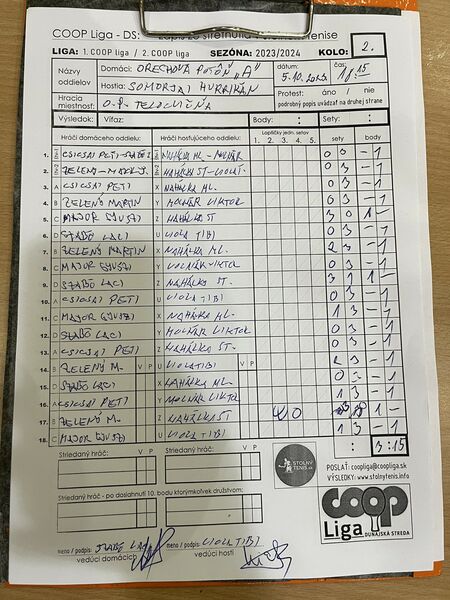 COOP Liga - DS: Zápis zo stretnutia v stolnom tenise
LIGA: 1. COOP liga / 2. COOP liga SEZÓNA: 2023/2024 KOLO: 2.
Názvy oddielov Domáci: ORECHOVÁ POTÔŇ "A" dátum: 5.10.2023 čas: 18:15
Hostia: SOMORJAI HURRIKÁN Protest: áno / nie
Hracia miestnosť: O.P. TELOCVIČŇA podrobný popis uvádzať na druhej strane
Výsledok: Víťaz: Body: : Sety: :
Hráči domáceho oddielu: Hráči hosťujúceho oddielu: Loptičky jedn. setov 1. 2. 3. 4. 5. sety body
1. CSICSAI PETI - SZABÓ NAHÁLKA ML - MOLNÁR 0 3 - 1
2. ZELENÝ - NAHÁLKA ST - VIOLA T. 0 3 - 1
3. A CSICSAI PETI X NAHÁLKA ML. 0 3 - 1
4. B ZELENÝ MARTIN Y MOLNÁR VIKTOR 0 3 - 1
5. C MAJOR GYUSZI Z NAHÁLKA ST 3 0 1 -
6. D SZABÓ LACI U VIOLA TIBI 0 3 - 1
7. B ZELENÝ MARTIN X NAHÁLKA ML. 2 3 - 1
8. C MAJOR GYUSZI Y MOLNÁR VIKTOR 0 3 - 1
9. D SZABÓ LACI Z NAHÁLKA ST. 3 1 1 -
10. A CSICSAI PETI U VIOLA TIBI 0 3 - 1
11. C MAJOR GYUSZI X NAHÁLKA ML. 1 3 - 1
12. D SZABÓ LACI Y MOLNÁR VIKTOR 0 3 - 1
13. A CSICSAI PETI Z NAHÁLKA ST. 0 3 - 1
14. B ZELENÝ M. V P U VIOLA TIBI V P 2 3 - 1
15. D SZABÓ LACI X NAHÁLKA ML. 0 3 - 1
16. A CSICSAI PETI Y MOLNÁR VIKTOR 1 3 - 1
17. B ZELENÝ M. Z NAHÁLKA ST W O 1 -
18. C MAJOR GYUSZI U VIOLA TIBI 1 3 - 1
: 3:15
Striedaný hráč: V P Striedaný hráč: V P
STOLNÝ TENIS
POSLAŤ: coopliga@coopliga.sk
VÝSLEDKY: www.stolnytenis.info
Striedaný hráč - po dosiahnutí 10. bodu ktorýmkoľvek družstvom:
COOP
Liga DUNAJSKÁ STREDA
meno / podpis: SZABÓ LACI meno / podpis: VIOLA TIBI
vedúci domácich vedúci hostí